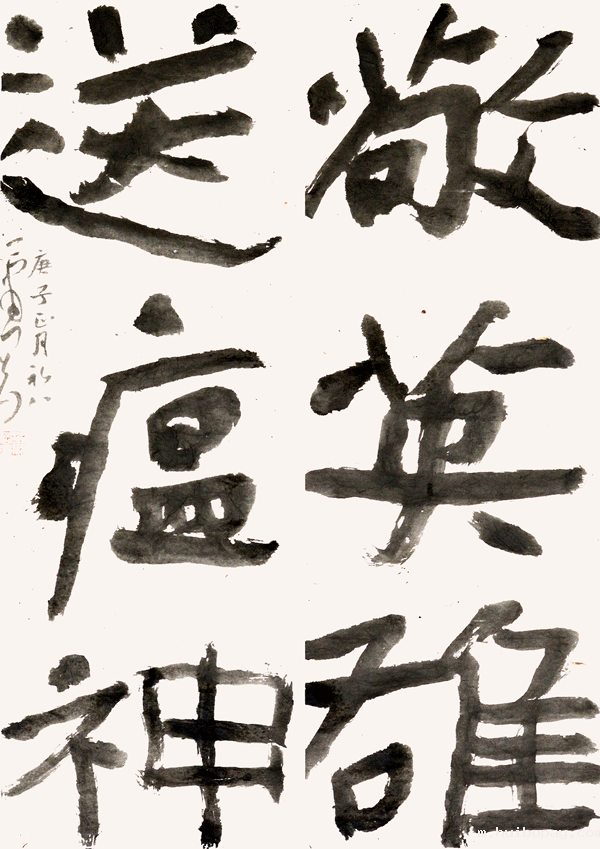 敬英雄
送瘟神
庚子正月初八